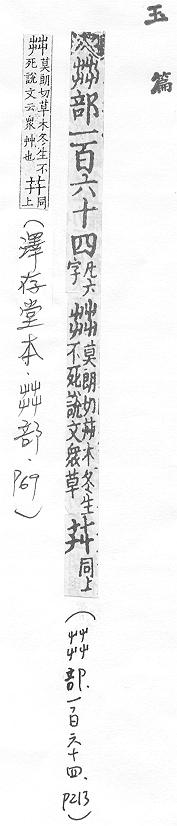 玉篇
茻部一百六十四凡六字 茻莫朗切草木冬生不死說文衆草 茻同上(茻部.一百六十四、P213)
茻莫朗切草木冬生不死說文云衆艸也 茻同上(澤存堂本.茻部.P69)